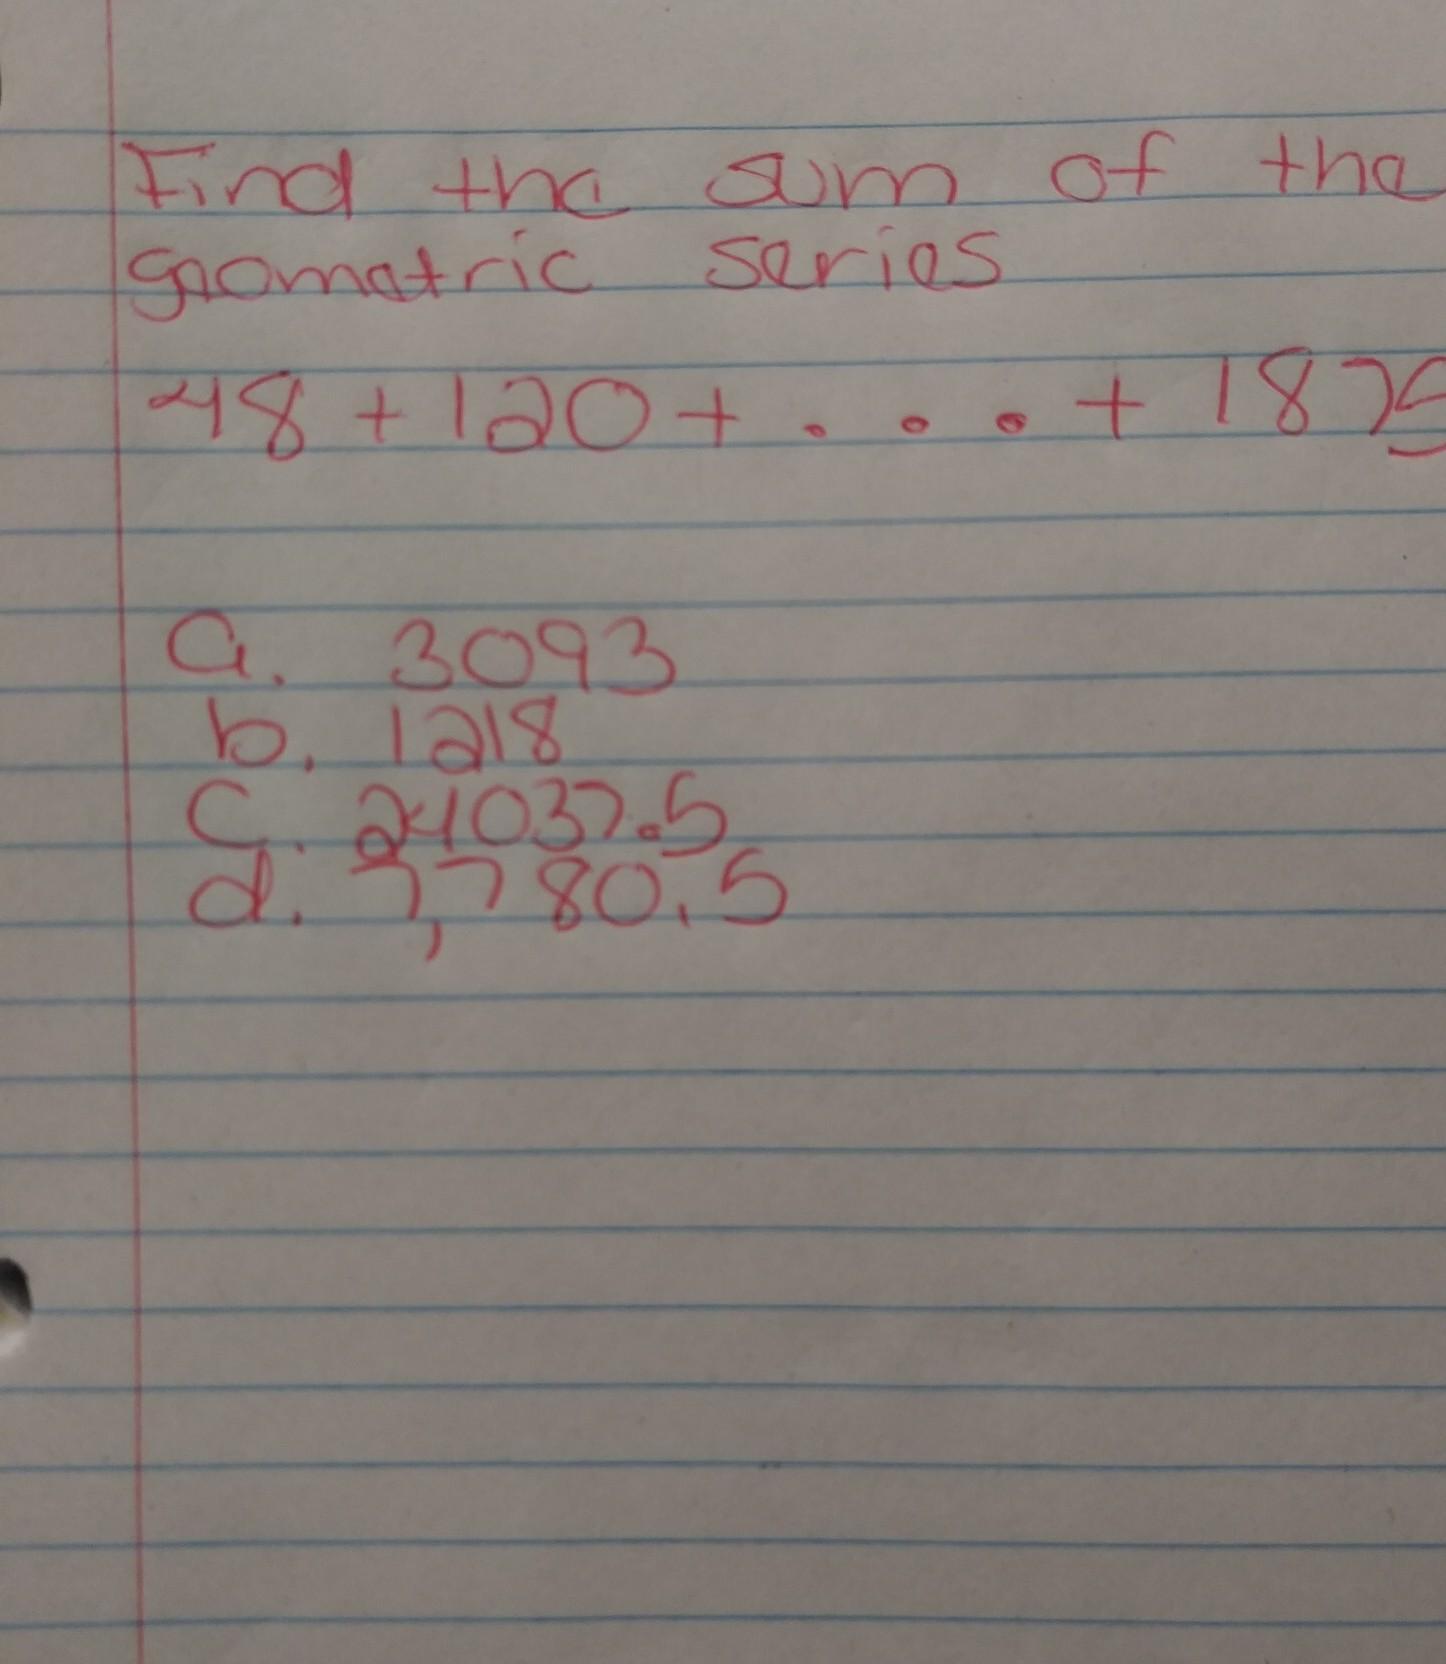 Find the sum of the
geometric series
48 + 120 + . . . + 1875
a. 3093
b. 1218
c. 24037.5
d. 7,780.5